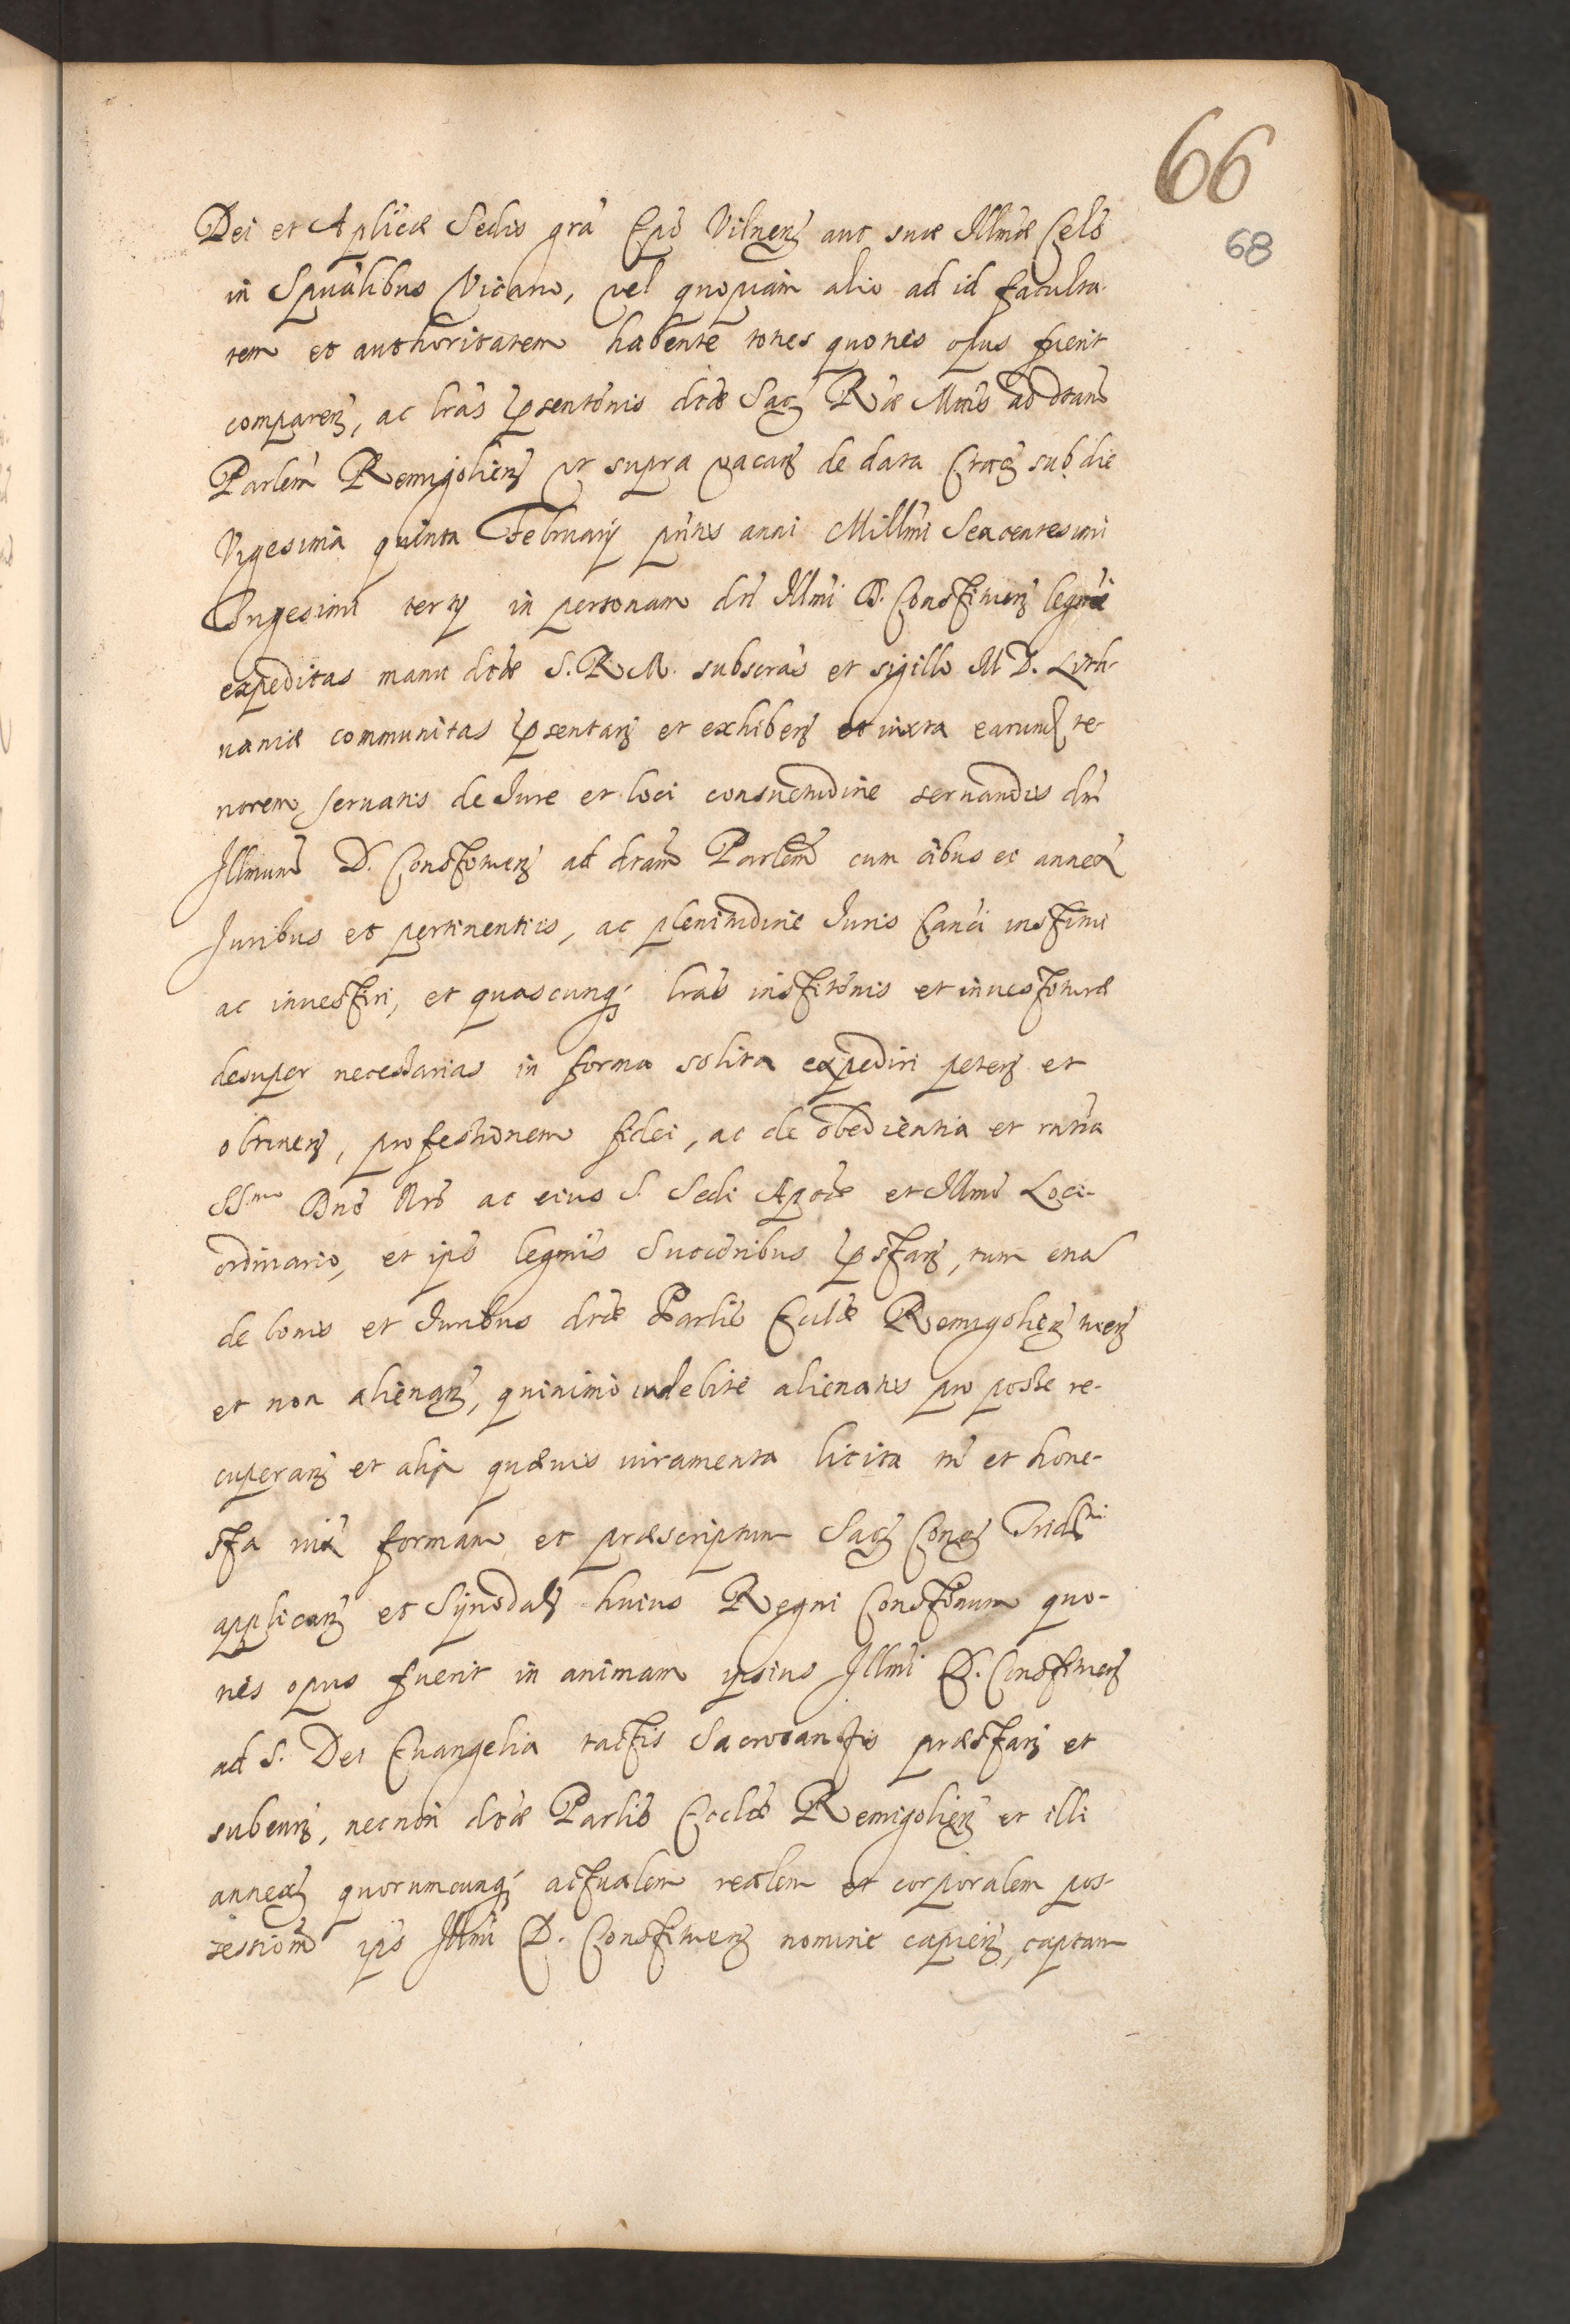 66
68
Dei et Aplicæ Sedis grâ Epô Vilnen̄ aut suæ Illmæ Cels
in Spuâlibus Vicario, vel quopiam alio ad id faculta-
tem et authoritatem habente toties quoties opus fuerit
comparen̄, ac lrâs p̄sentônis dtæ Sac̄ R̄æ Mttis ad dtam
Parlem̄ Remigolien̄ vt supra vacan̄ de data Crac̄ sub die
Vigesima quinta Februarij pn̄tis anni Millmi Sexcentesimi
Trigesimi tertij in personam dn̄i Illmi D. Constituen̄ legme
expeditas manu dtæ S. R. M. subscras et sigillo M D. Lith-
uaniæ communitas p̄sentan̄ et exhiben̄ et iuxta earund̄ te-
norem, seruatis de Jure et loci consuetudine seruandis dn̄
Illmum D. Constituen̄ ad dtam Parlem̄ cum oibus ei annex̄
Juribus et pertinentiis, ac plenitudine Juris Canci institui
ac inuestiri, et quascunq̨ lrâs institônis et inuestituræ
desuper necessarias in forma solita expediri peten̄ et
obtinen̄, professionem fidei, ac de obedientia et rntia
SSmo Dnô Nrô ac eius S. Sedi Apcæ et Illmô Loci
ordinario, et ipô legmis Succôribus p̄stan̄, tum etia
de bonis et Juribus dtæ Parlis Eccliæ Remigolien̄ tuen̄
et non alienan̄, quinimo indebite alienatis pro posse re-
cuperan̄ et alia quæuis iuramenta licita tn̄ et hone-
sta iux̄ formam et præscriptum Sac̄ Conc̄ Tridni
applican̄ et Synodal̄ huius Regni Constônum quo-
ties opus fuerit in animam ipsius Illmi D. Constituen̄
ad S. Dei Euangelia tactis Sacrosanctis præstan̄ et
subeun̄, necnon dtæ Parlis Eccliæ Remigolien̄ et illi
annex̄ quorumcunq̨ actualem realem et corporalem pos-
sessionê ipŝ Illmi D. Constituen̄ nomine capien̄, captam